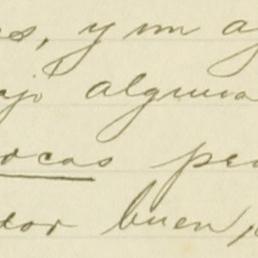 s, y un a
ajo alguna
ocas pe
dor buen,